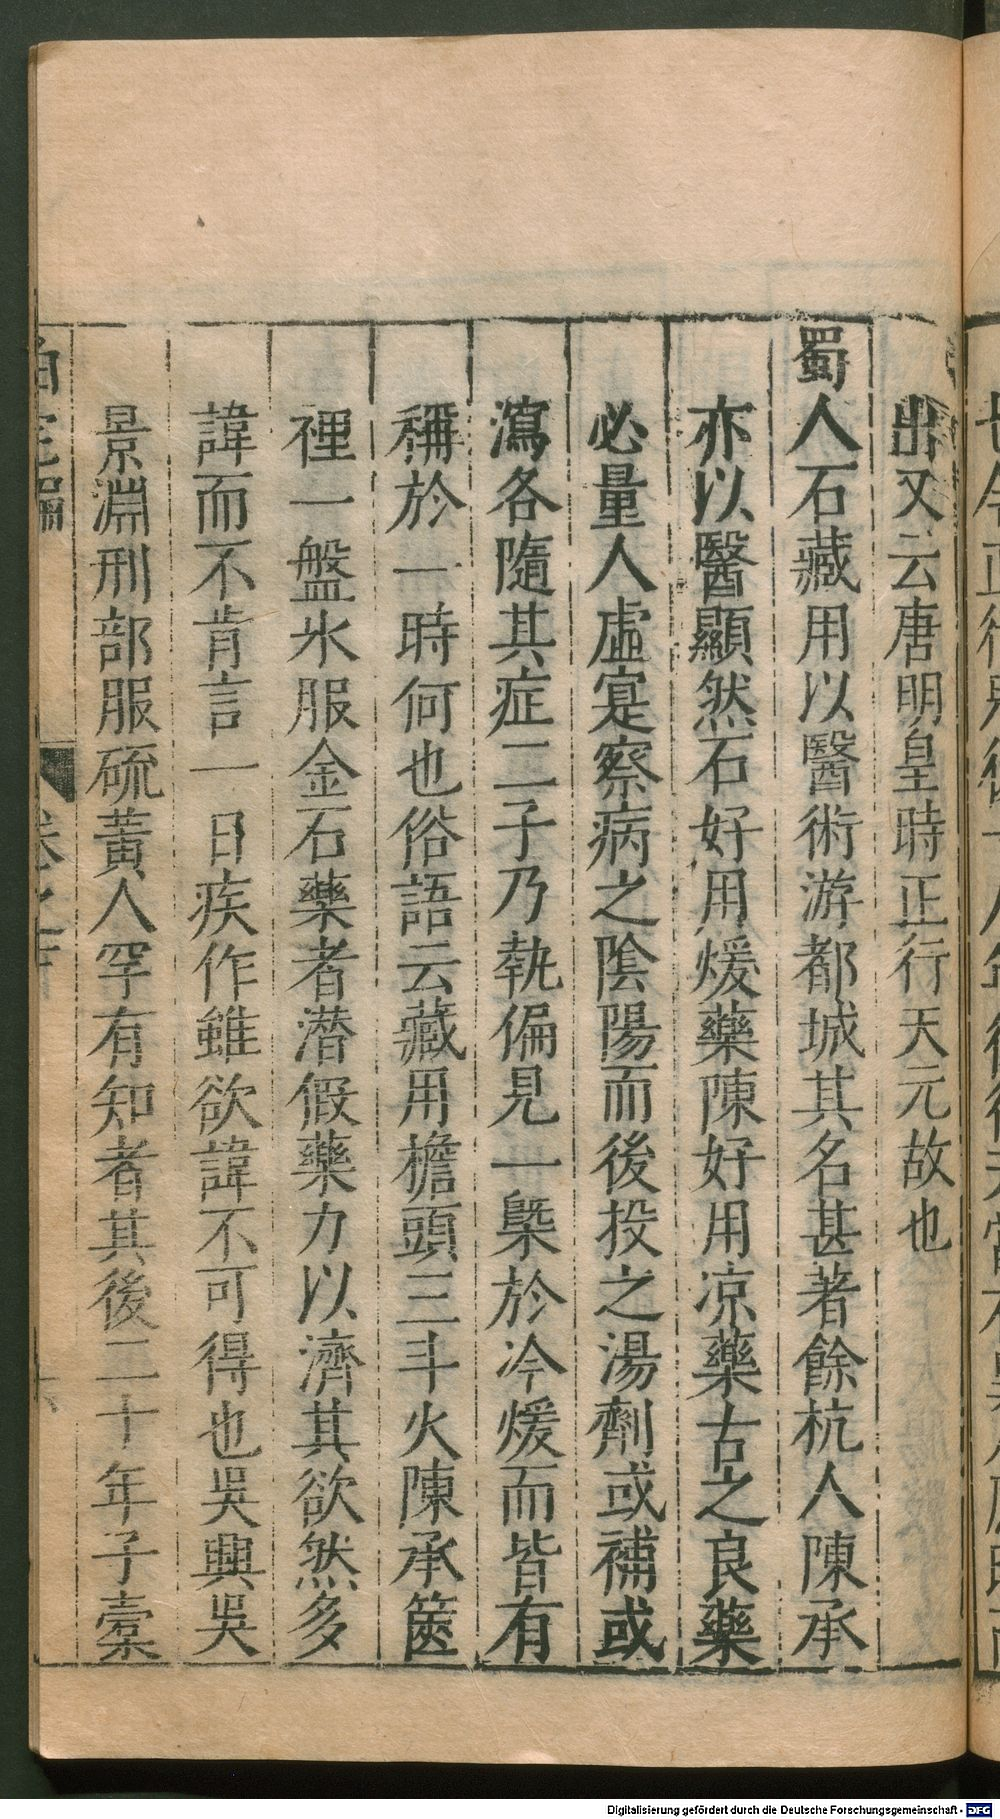 出又云唐明皇時正行天元故也
蜀人石藏用以醫術游都城其名甚著餘杭人陳承
亦以醫顯然石好用煖藥陳好用凉藥古之良藥
必量人虛寔察病之陰陽而後投之湯劑或補或
瀉各隨其症二子乃執偏見一槩於冷煖而皆有
稱於一時何也俗語云藏用檐頭三斗火陳承篋
裡一盤氷服金石藥者潜假藥力以濟其欲然多
諱而不肯言一日疾作雖欲諱不可得也吳興吳
景淵刑部服硫黃人罕有知者其後二十年子橐
泊宅編
卷之
Digitalisierung gefördert durch die Deutsche Forschungsgemeinschaft - DFG